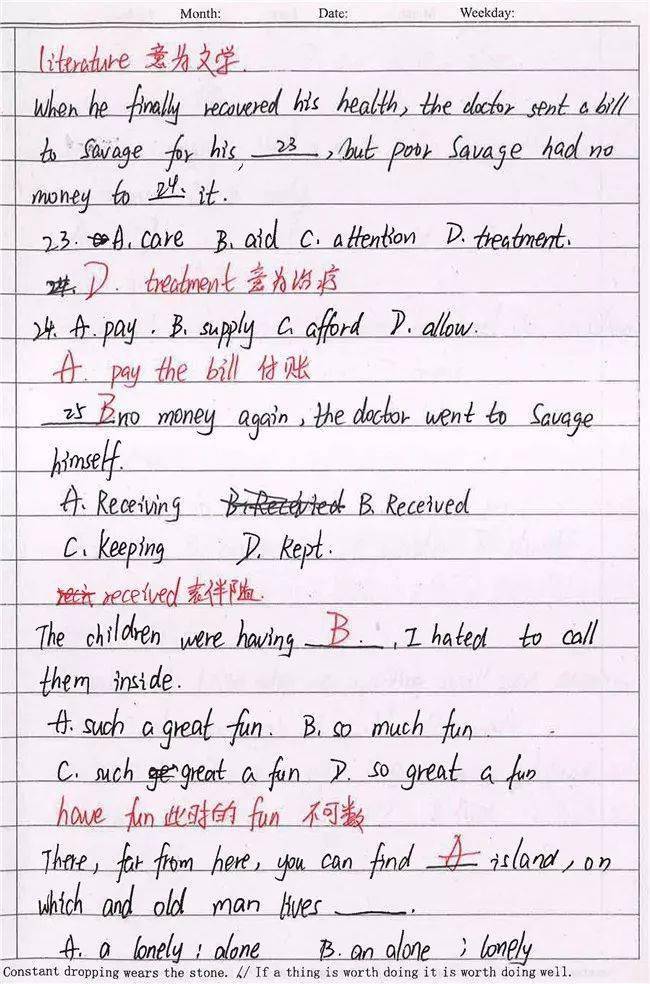 Month: Date: Weekday:
literature 意为文学.
When he finally recovered his health, the doctor sent a bill
to Savage for his, 23 , but poor Savage had no
money to 24. it.
23. A. care B. aid C. attention D. treatment.
24. D. treatment 意为治疗
24. A. pay. B. supply C. afford D. allow.
A. pay the bill 付账
25 B no money again, the doctor went to Savage
himself.
A. Receiving B. Received B. Received
C. keeping D. kept.
received 表伴随.
The children were having B. , I hated to call
them inside.
A. such a great fun. B. so much fun.
C. such great a fun D. so great a fun
have fun 此时的 fun 不可数
There, far from here, you can find A island, on
which and old man lives ______.
A. a lonely; alone B. an alone ; lonely
Constant dropping wears the stone. // If a thing is worth doing it is worth doing well.